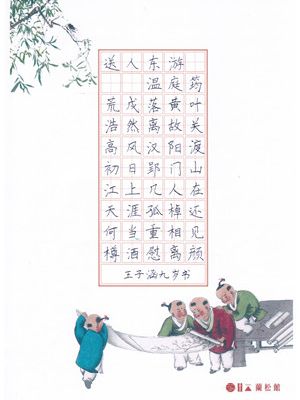 送人东游
温庭筠
荒戍落黄叶
浩然离故关
高风汉阳渡
初日郢门山
江上几人在
天涯孤棹还
何当重相见
樽酒慰离颜
王子涵九岁书
蘭松館